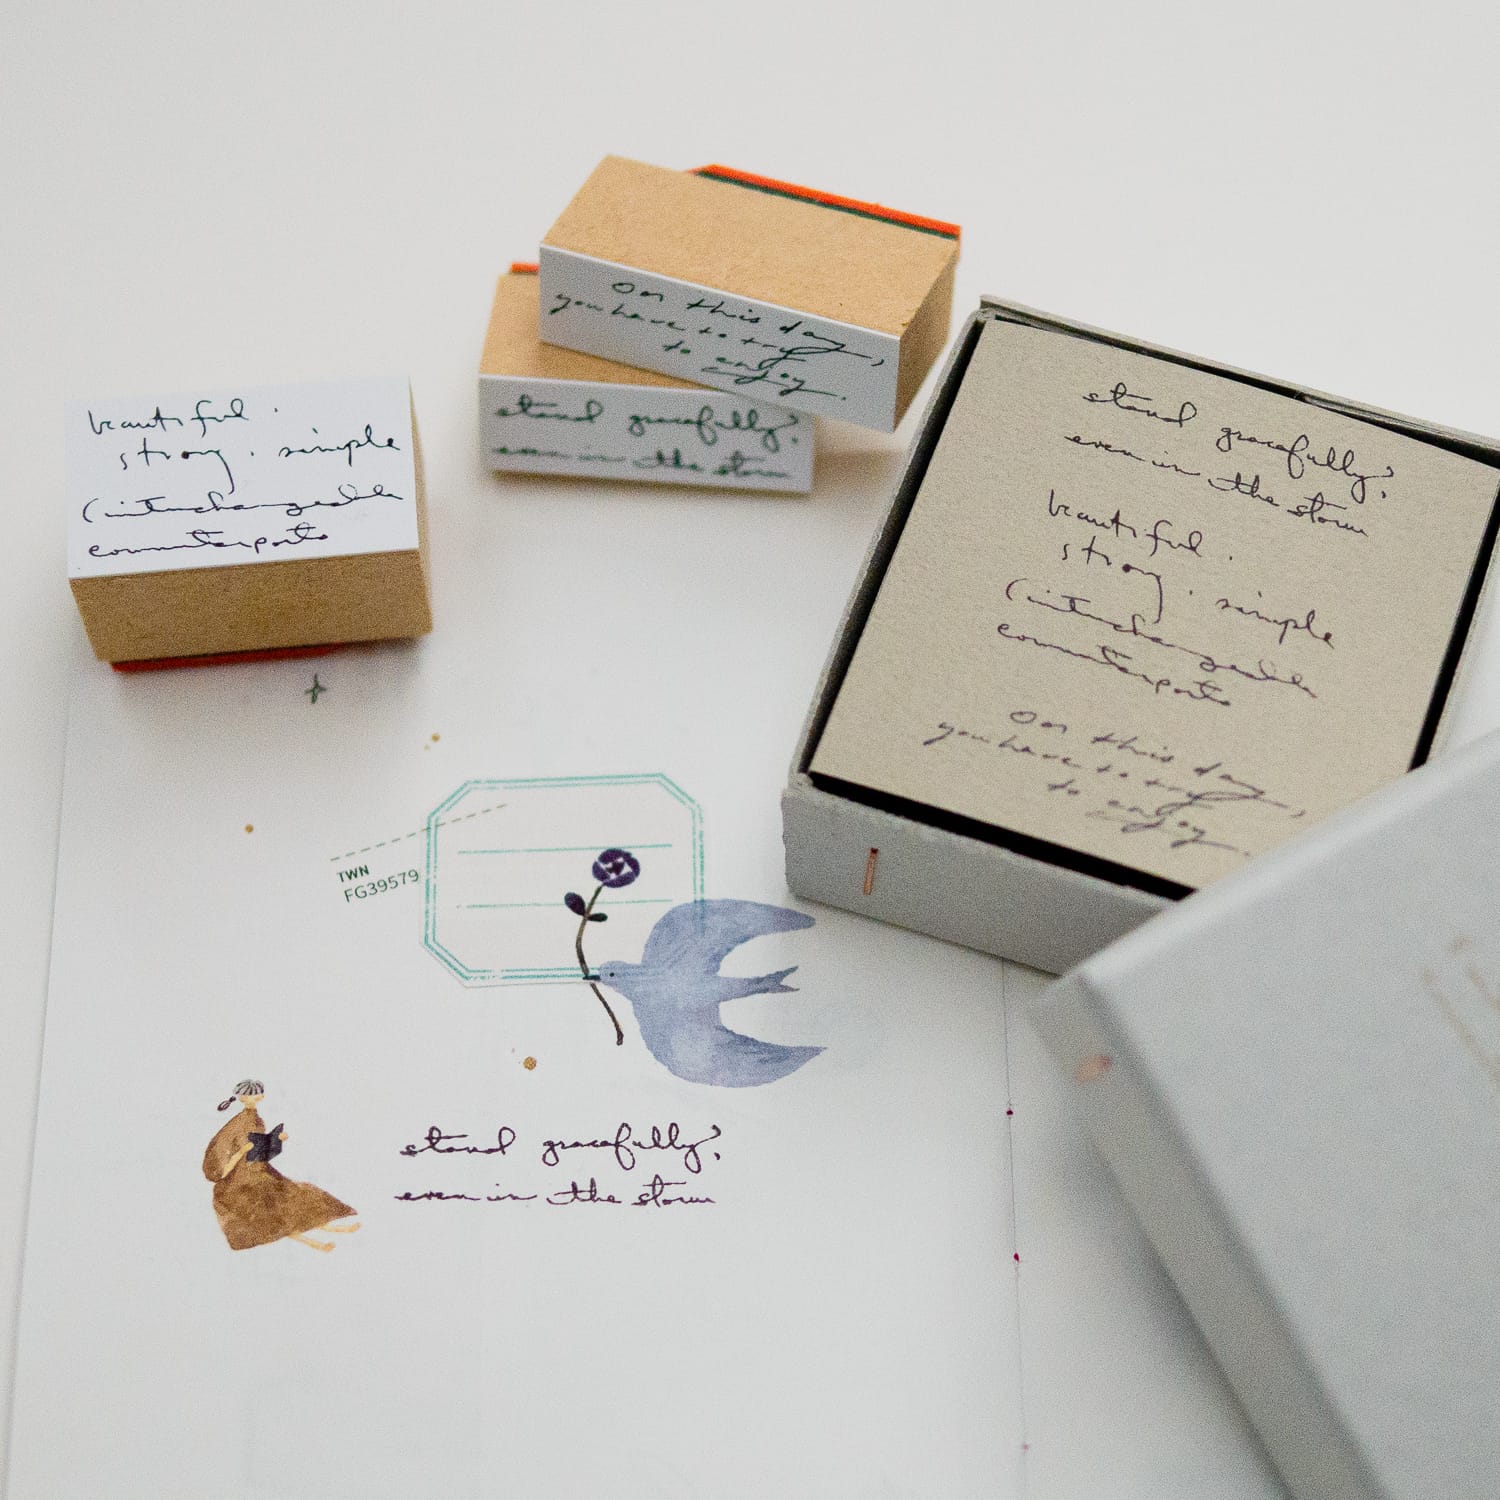 On this day,
you have to try
to enjoy.
stand gracefully,
even in the storm
beautiful.
strong. simple
(interchangeable
counterparts
stand gracefully,
even in the storm
beautiful.
strong. simple
(interchangeable
counterparts
On this day,
you have to try,
to enjoy.
TWN
FG39579
stand gracefully,
even in the storm